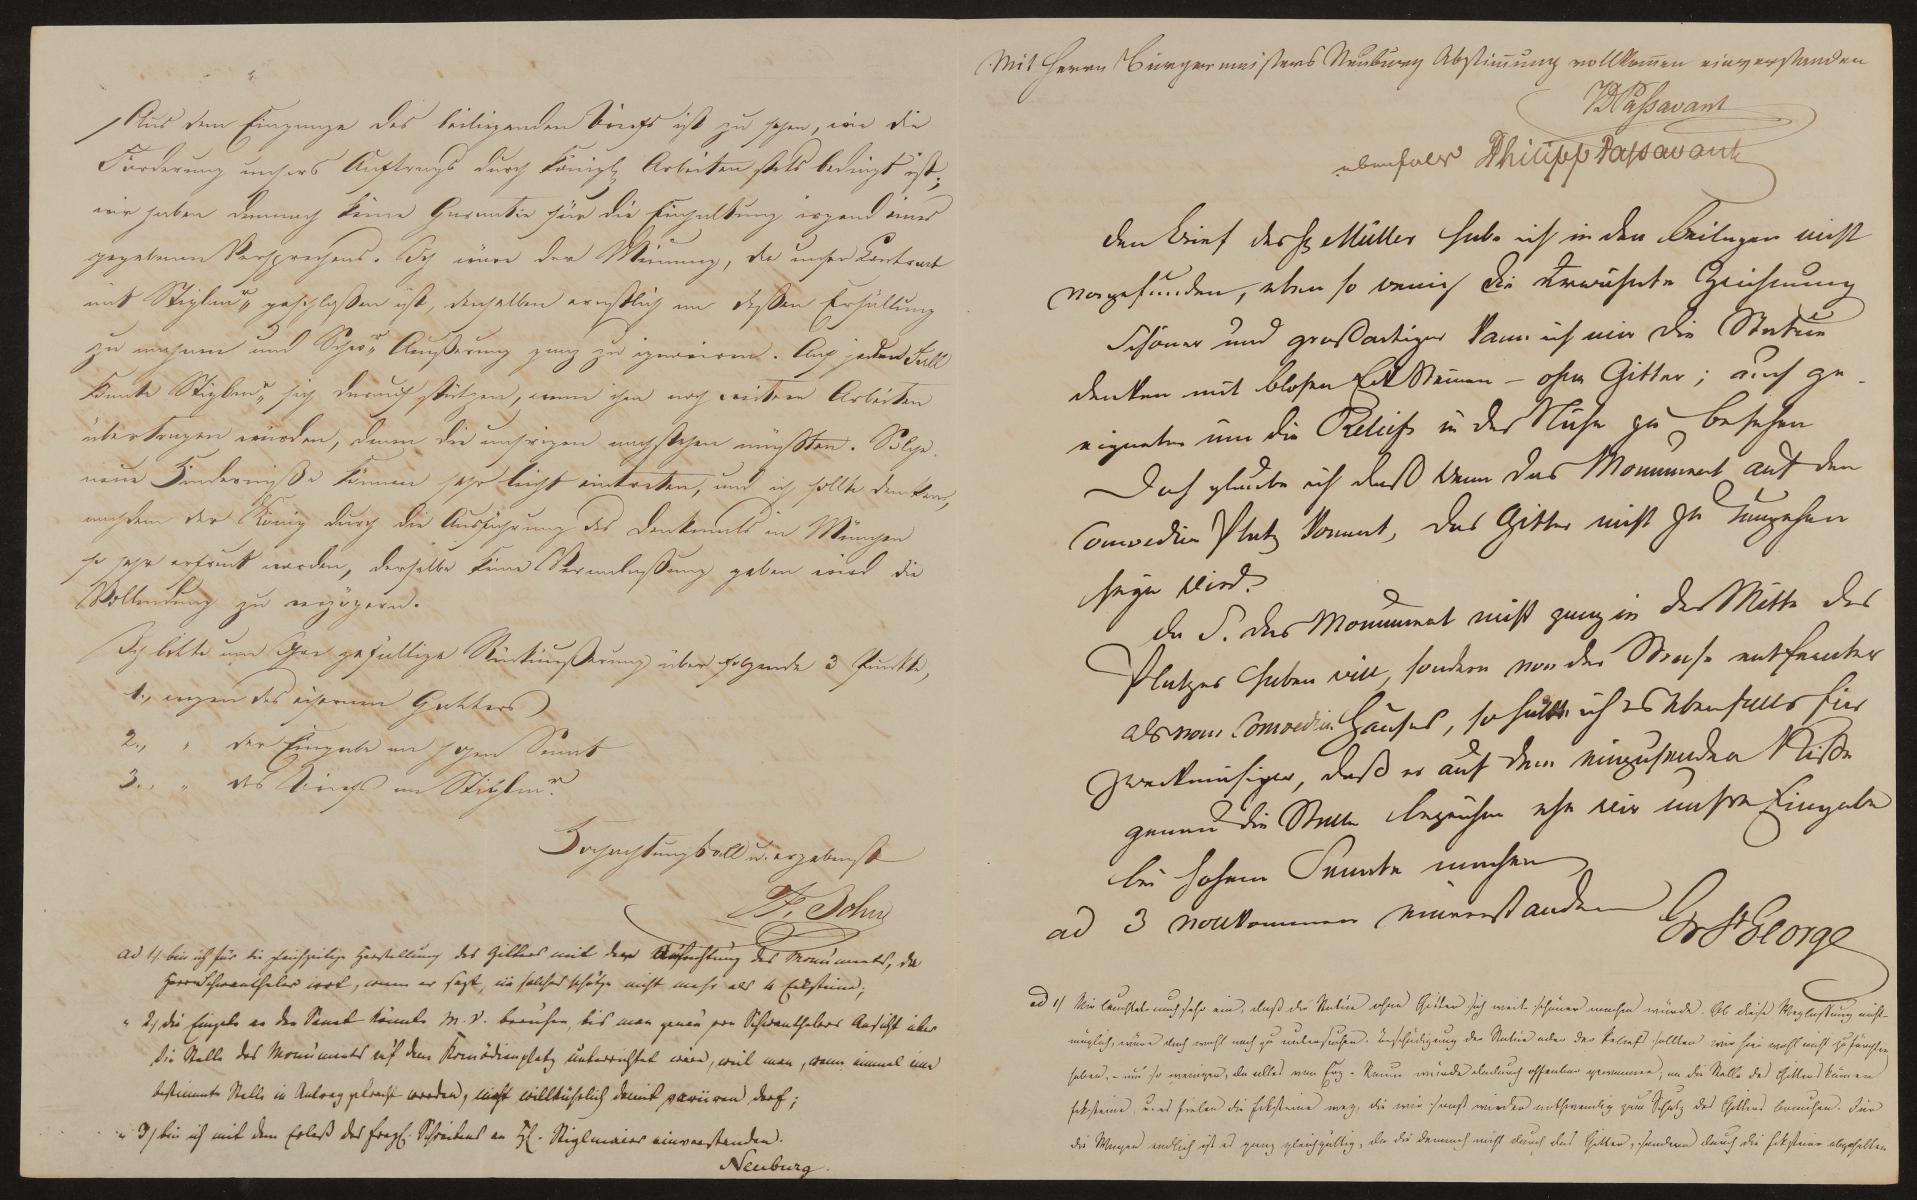 Aus dem Eingange des beiliegenden Briefs ist zu sehen, wie die
Förderung unsers Auftrags durch Königl. Arbeiten stets bedingt ist;
wir haben demnach keine Garantie für die Einhaltung irgend eines
gegebenen Versprechens. Ich wäre der Meinung, da unser Contract
mit Stiglmr. geschlossen ist, denselben ernstlich an dessen Erfüllung
zu mahnen und Schw. Äußerung ganz zu ignoriren. Auf jeden Fall
könnte Stiglmr. sich darauf stützen, wenn ihm noch weitere Arbeiten
übertragen würden, denen die unsrigen nachstehen müßten. Solche
neue Hindernisse können sehr leicht eintreten, und ich sollte denken,
nachdem der König durch die Ausführung des Denkmals in München
so sehr erfreut worden, derselbe keine Veranlassung geben wird die
Vollendung zu verzögern.
Ich bitte um Ihre gefällige Rückäußerung über folgende 3 Punkte,
1., wegen des eisernen Gitters
2., " der Eingabe an hohen Senat
3., " des Briefs an Stiglmr.
Hochachtungsvoll u. ergebenst
A. Bohn
ad 1/ bin ich für die gleichzeitige Herstellung des Gitters mit der Aufrichtung des Monuments, da
Herr Schwanthaler irrt, wenn er sagt, ein solches schütze nicht mehr als 4 Ecksteine;
" 2/ die Eingabe an den Senat könnte m. E. beruhen, bis man genau von Schwanthalers Ansicht über
die Stelle des Monuments auf dem Komödienplatz unterrichtet wäre, weil man, wenn einmal eine
bestimmte Stelle in Antrag gebracht worden, nicht willkührlich damit variiren darf;
" 3/ bin ich mit dem Erlaß des fragl. Schreibens an H. Stiglmaier einverstanden.
Neuburg.
Mit Herrn Bürgermeisters Neuburg Abstimmung vollkommen einverstanden
JD Passavant
ebenfalls Philipp Passavant
Den Brief des H. Müller habe ich in den Beilagen nicht
vorgefunden, eben so wenig die erwähnte Zeichnung
Schöner und großartiger kann ich mir die Statue
denken mit blosen Eck Steinen – ohne Gitter; auch ge-
eigneter um die Reliefs in der Nähe zu besehen
Doch glaube ich daß wenn das Monument auf den
Comoedien Platz kommt, das Gitter nicht zu umgehen
seyn wird.
Da S. das Monument nicht ganz in der Mitte des
Platzes haben will, sondern von der Strase entfernter
als vom Comoedien Hause, so halte ich es ebenfalls für
zweckmäsiger, daß er auf dem einzusendenden Risse
genau die Stelle bezeichne ehe wir unsre Eingabe
bei hohem Senate machen
ad 3 vollkommen einverstanden
Gg St George
ad 1/ Mir leuchtet auch sehr ein, daß die Statue ohne Gitter sich weit schöner machen würde. Ob diese Weglassung nicht
möglich, wäre doch wohl noch zu untersuchen. Beschädigung der Statue oder der Reliefs sollten wir hier wohl nicht zu fürchten
haben, – um so weniger, da alles von Erz. – Raum würde dadurch offenbar gewonnen; an die Stelle des Gitters kämen
Ecksteine, u. es fielen die Ecksteine weg, die wir sonst wieder nothwendig zum Schutz des Gitters brauchen. Für
die Wagen endlich ist es ganz gleichgültig, da die dennoch nicht durch das Gitter, sondern durch die Ecksteine abgehalten